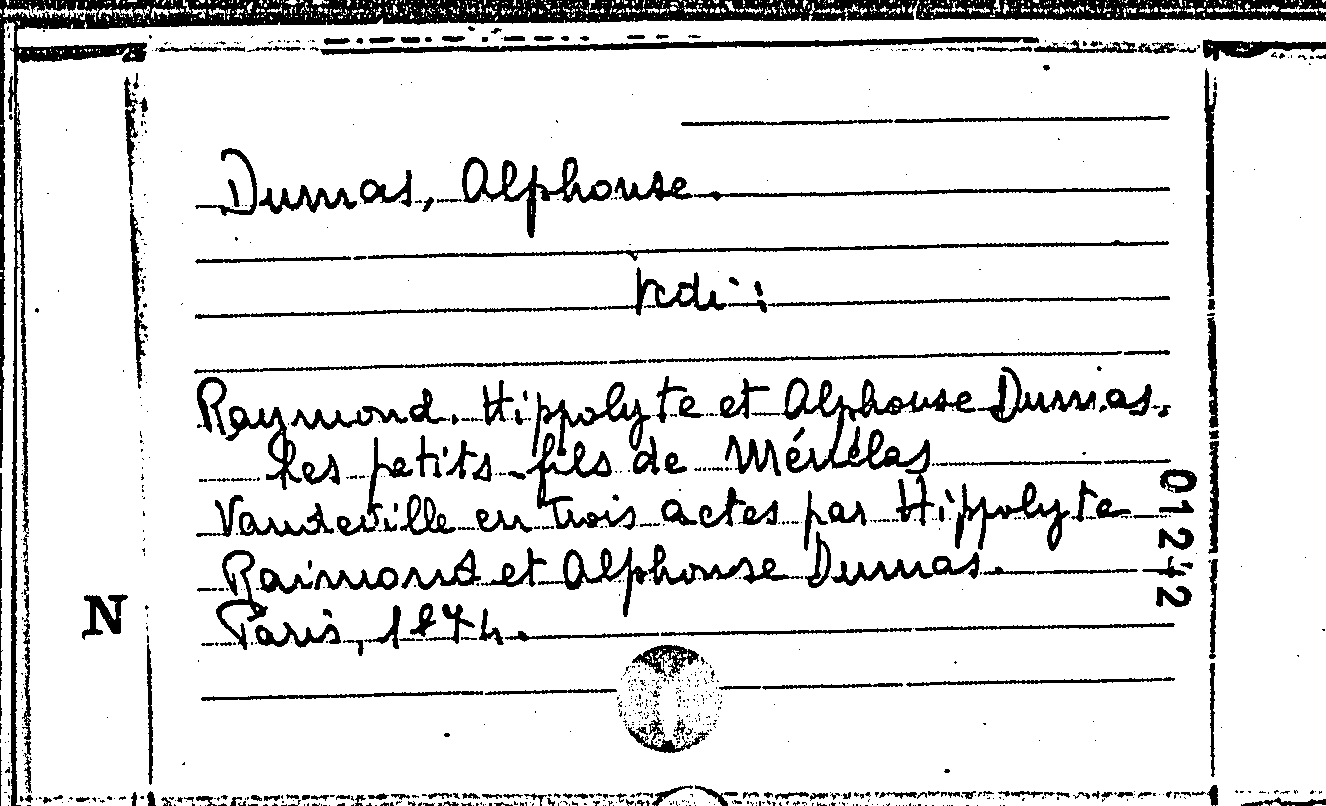 Dumas, Alphonse.
vedi:
Raymond. Hippolyte et Alphonse Dumas.
Les petits-fils de Ménélas
Vaudeville en trois actes par Hippolyte
Raimond et Alphonse Dumas.
Paris, 1874.
N
01242